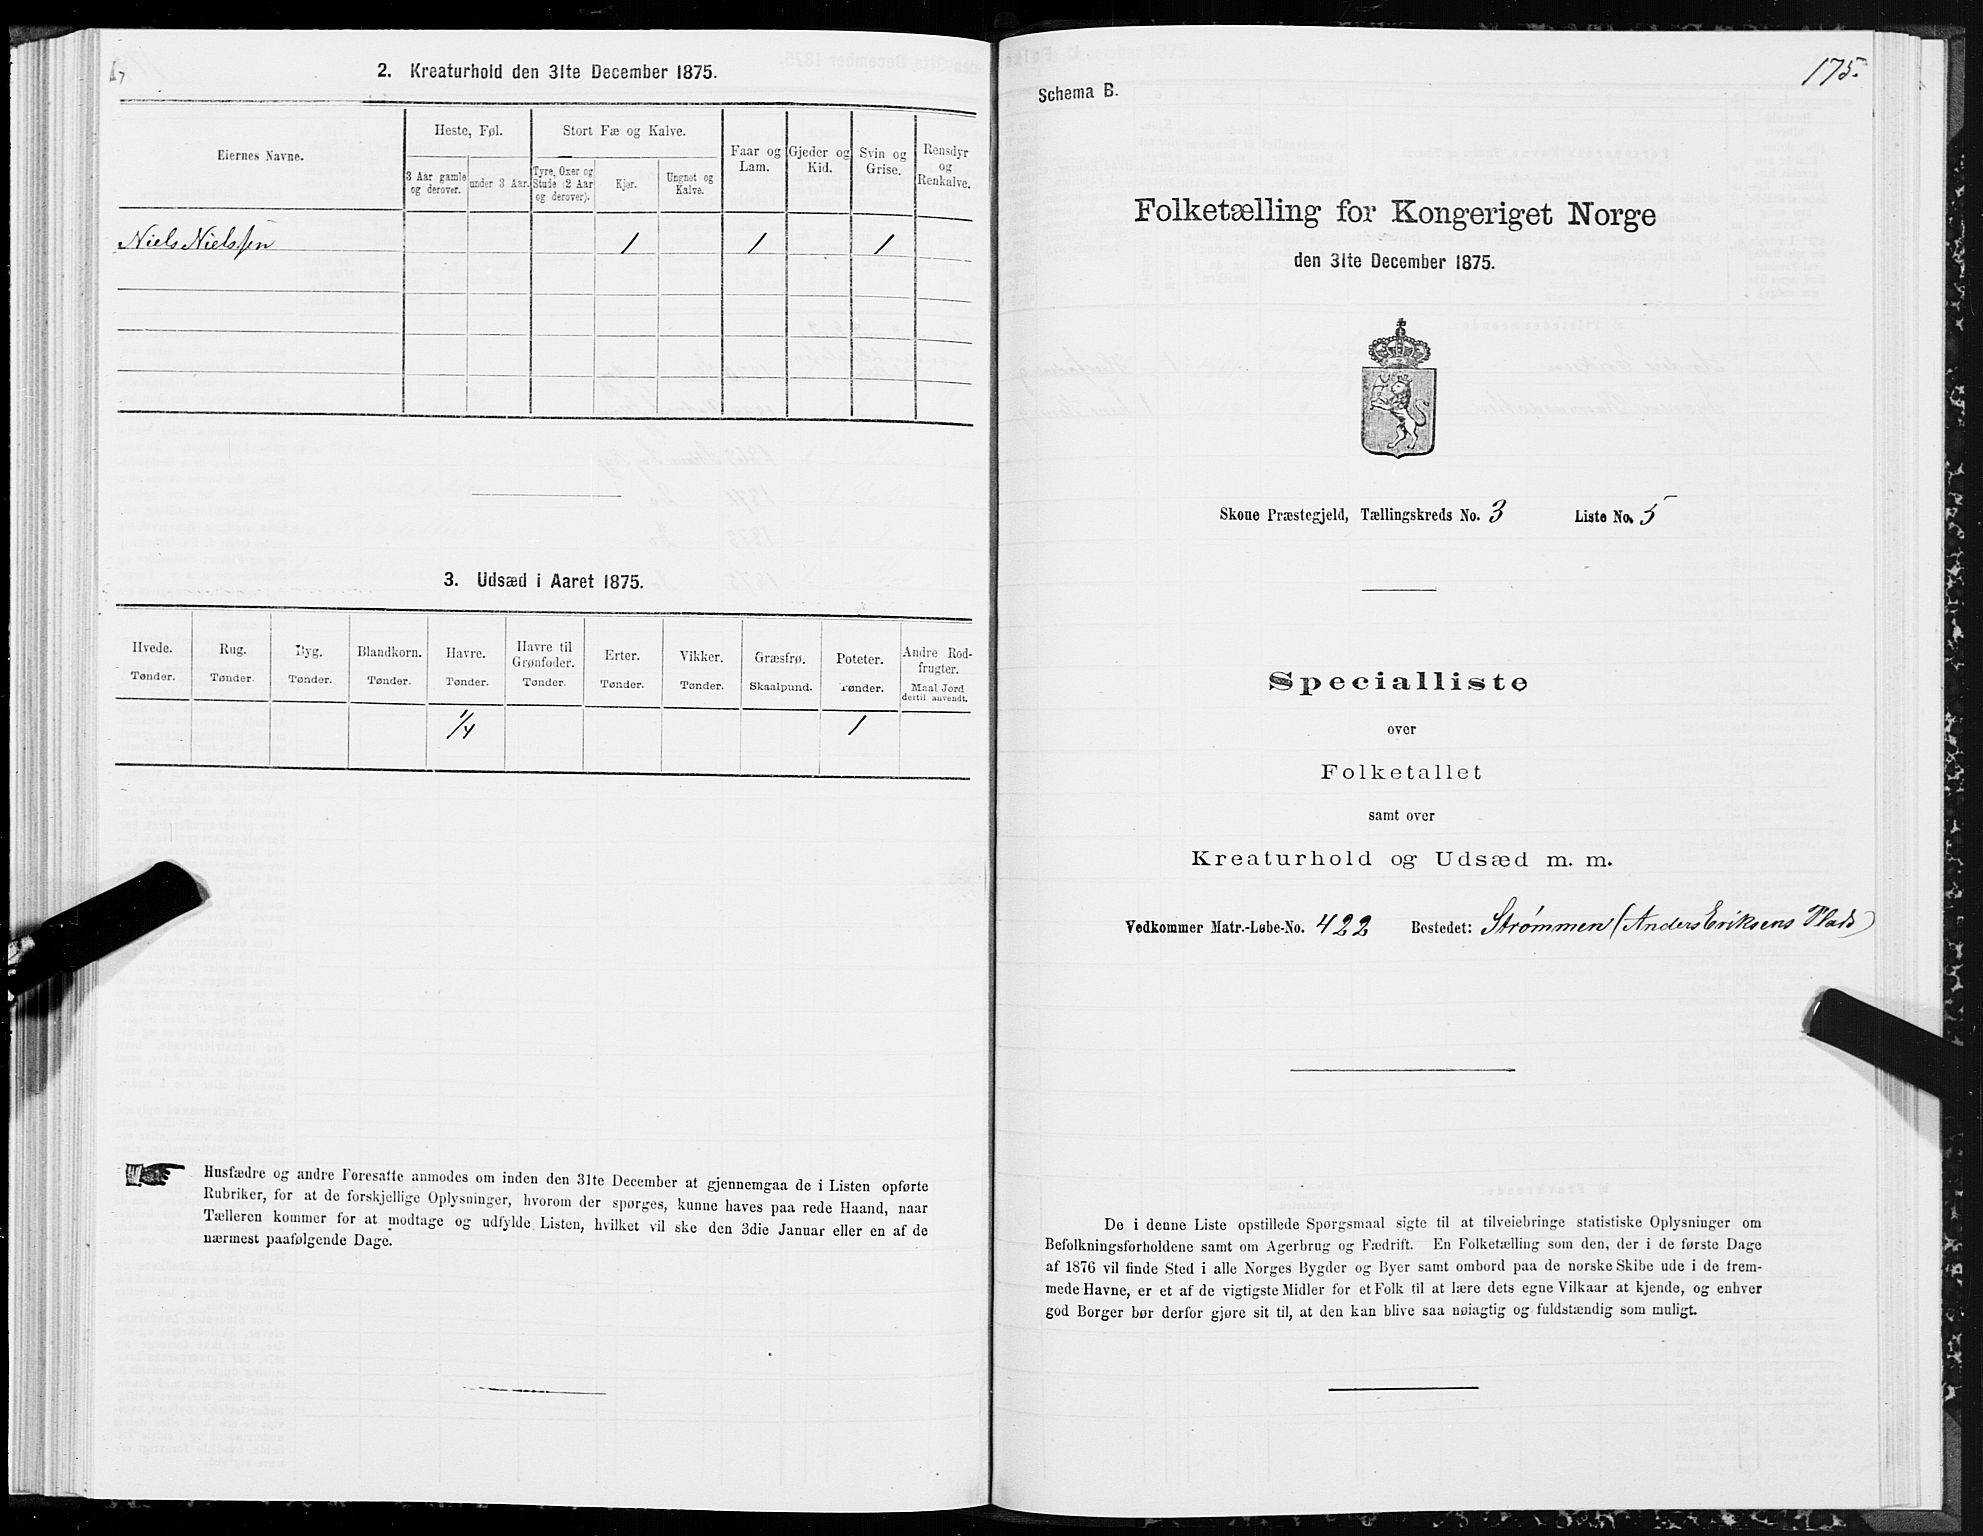 2. Kreaturhold den 31te December 1875.
Eiernes Navne.
Heste, Føl.
Stort Fæ og Kalve.
Faar og Lam.
Gjeder og Kid.
Svin og Grise.
Rensdyr og Renkalve.
3 Aar gamle og derover.
under 3 Aar.
Tyre, Oxer og Stude (2 Aar og derover).
Kjør.
Ungnet og Kalve.
Niels Nielssen 1 1 1
3. Udsæd i Aaret 1875.
Hvede. Rug. Byg. Blandkorn. Havre. Havre til Grønfoder. Erter. Vikker. Græsfrø. Poteter. Andre Rodfrugter.
Tønder. Tønder. Tønder. Tønder. Tønder. Tønder. Tønder. Tønder. Skaalpund. Tønder. Maal Jord dertil anvendt.
1/4 1
Husfædre og andre Foresatte anmodes om inden den 31te December at gjennemgaa de i Listen opførte
Rubriker, for at de forskjellige Oplysninger, hvorom der spørges, kunne haves paa rede Haand, naar
Tælleren kommer for at modtage og udfylde Listen, hvilket vil ske den 3die Januar eller en af de
nærmest paafølgende Dage.
175.
Schema B.
Folketælling for Kongeriget Norge
den 31te December 1875.
Skoue Præstegjeld, Tællingskreds No. 3 Liste No. 5
Specialliste
over
Folketallet
samt over
Kreaturhold og Udsæd m. m.
Vedkommer Matr.-Løbe-No. 422 Bostedet: Strømmen (Anders Eriksens Plads)
De i denne Liste opstillede Spørgsmaal sigte til at tilveiebringe statistiske Oplysninger om
Befolkningsforholdene samt om Agerbrug og Fædrift. En Folketælling som den, der i de første Dage
af 1876 vil finde Sted i alle Norges Bygder og Byer samt ombord paa de norske Skibe ude i de frem-
mede Havne, er et af de vigtigste Midler for et Folk til at lære dets egne Vilkaar at kjende, og enhver
god Borger bør derfor gjøre sit til, at den kan blive saa nøiagtig og fuldstændig som muligt.